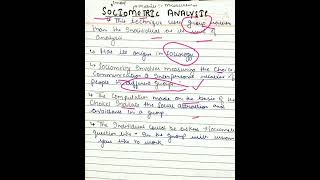 SOCIOMETRIC ANALYSIS
→ This technique uses group rather
than the Individual as its unit of
Analysis
→ Has its origin in Sociology
→ Sociometry Involves measuring the Choice,
Communication & Interpersonal relation of
people in different group.
→ The Computation made on the basis of the
Choice Indicate the Social attraction and
avoidance in a group
→ The Individual could be asked Sociometric
question like - In the group with whom
you like to work